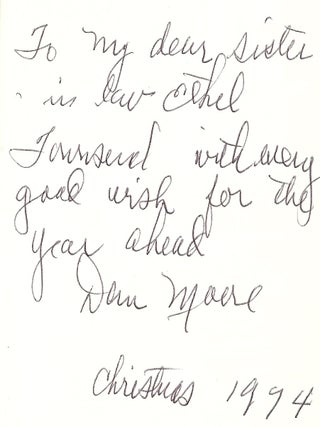 To my dear sister
in law Ethel
Townsend with every
good wish for the
year ahead
Dan Moore
Christmas 1994